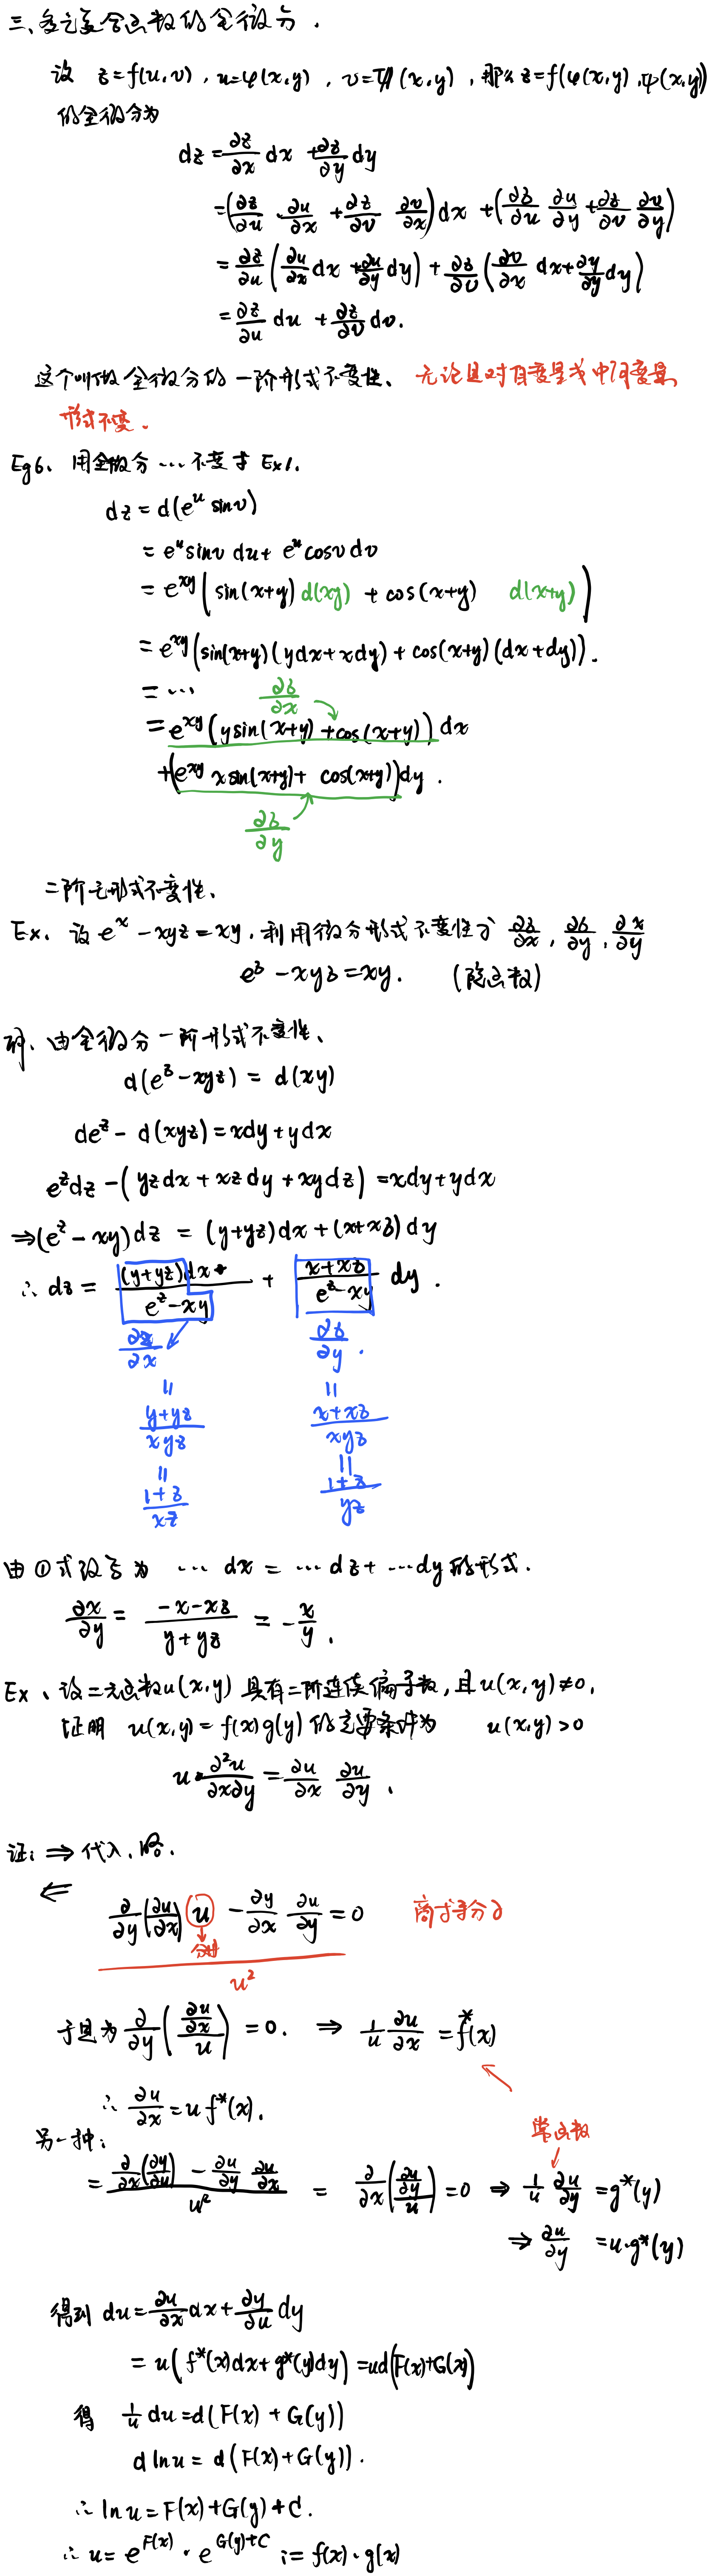 三、多元复合函数的全微分.
设 z=f(u,v), u=φ(x,y), v=ψ(x,y), 那么 z=f(φ(x,y),ψ(x,y))
的全微分为
dz = ∂z/∂x dx + ∂z/∂y dy
= (∂z/∂u · ∂u/∂x + ∂z/∂v ∂v/∂x) dx + (∂z/∂u ∂u/∂y + ∂z/∂v ∂v/∂y)
= ∂z/∂u (∂u/∂x dx + ∂u/∂y dy) + ∂z/∂v (∂v/∂x dx + ∂y/∂y dy)
= ∂z/∂u du + ∂z/∂v dv.
这个叫做全微分的一阶形式不变性、 无论是对自变量或中间变量,
形式不变.
Eg6、用全微分…不变求 Ex1.
dz = d(e^u sinv)
= e^u sinv du + e^u cosv dv
= e^{xy} ( sin(x+y) d(xy) + cos(x+y) d(x+y) )
= e^{xy} (sin(x+y)(ydx+xdy) + cos(x+y)(dx+dy)).
= … ∂z/∂x
= e^{xy} (ysin(x+y) + cos(x+y)) dx
+(e^{xy} xsin(x+y) + cos(x+y))dy.
∂z/∂y
二阶无形式不变性、
Ex. 设 e^x - xyz = xy, 利用微分形式不变性求 ∂z/∂x, ∂z/∂y, ∂x/∂y
e^z - xyz = xy. (隐函数)
解、由全微分一阶形式不变性、
d(e^z - xyz) = d(xy)
de^z - d(xyz) = xdy + ydx
e^z dz - (yzdx + xzdy + xydz) = xdy + ydx
⇒ (e^z - xy)dz = (y+yz)dx + (x+xz)dy
∴ dz = (y+yz)dx/(e^z - xy) + (x+xz)/(e^z - xy) dy.
∂z/∂x ∂z/∂y.
= =
(y+yz)/(xyz) (x+xz)/(xyz)
= =
(1+z)/(xz) (1+z)/(yz)
由①式改写为 … dx = … dz + … dy 的形式.
∂x/∂y = (-x-xz)/(y+yz) = -x/y.
Ex、设二元函数u(x,y) 具有二阶连续偏导数, 且 u(x,y)≠0,
证明 u(x,y) = f(x)g(y) 的充要条件为 u(x,y)>0
u·∂²u/∂x∂y = ∂u/∂x ∂u/∂y.
证: ⇒ 代入, 略.
⇐
∂/∂y(∂u/∂x) u - ∂y/∂x ∂u/∂y = 0 商求导分子
u²
于是为 ∂/∂y ((∂u/∂x)/u) = 0. ⇒ 1/u ∂u/∂x = f*(x)
∴ ∂u/∂x = u f*(x).
另一种: 
= (∂/∂x(∂y/∂u) - ∂u/∂y ∂u/∂x)/u² = ∂/∂x((∂u/∂y)/u) = 0 ⇒ 1/u ∂u/∂y = g*(y)
⇒ ∂u/∂y = u·g*(y)
得到 du = ∂u/∂x dx + ∂y/∂u dy
= u( f*(x)dx + g*(y)dy) = ud(F(x)+G(y))
得 1/u du = d(F(x) + G(y))
d ln u = d(F(x)+G(y)).
∴ ln u = F(x)+G(y)+C.
∴ u = e^{F(x)} · e^{G(y)+C} := f(x)·g(x)